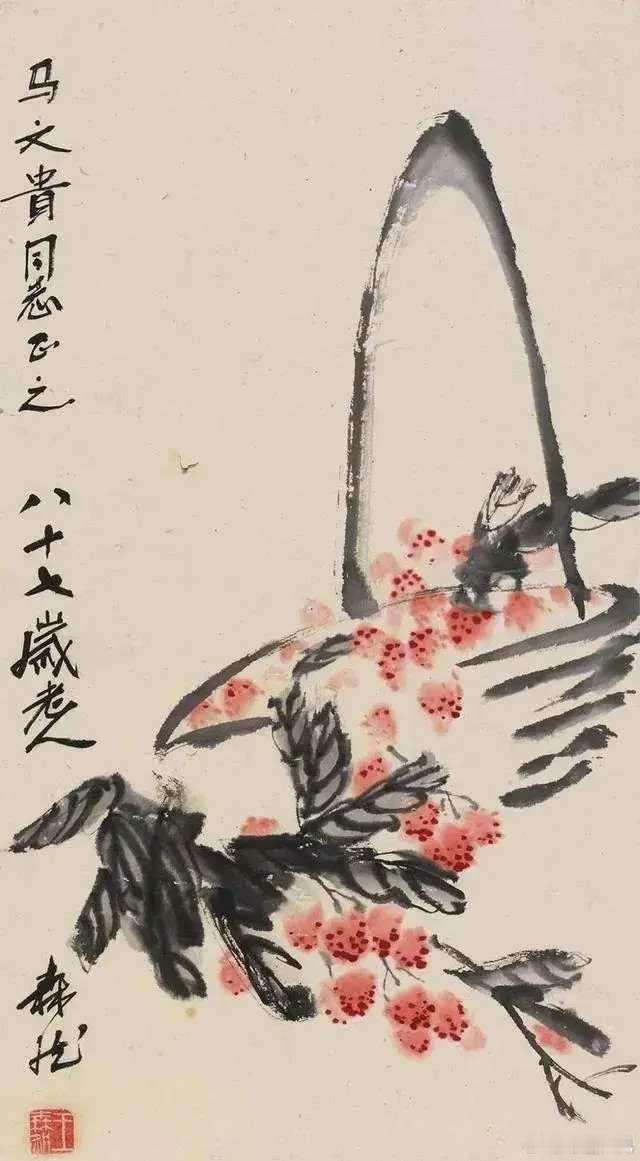 马文貴同志正之
八十七歲老人
森然